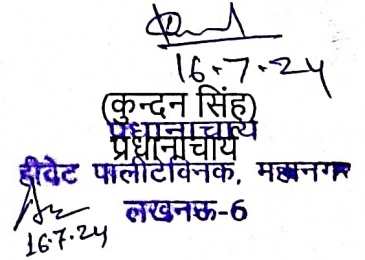 16.7.24
(कुन्दन सिंह)
प्रधानाचार्य
प्रधानाचार्य
हीवेट पालीटेक्निक, महानगर
लखनऊ-6
16.7.24